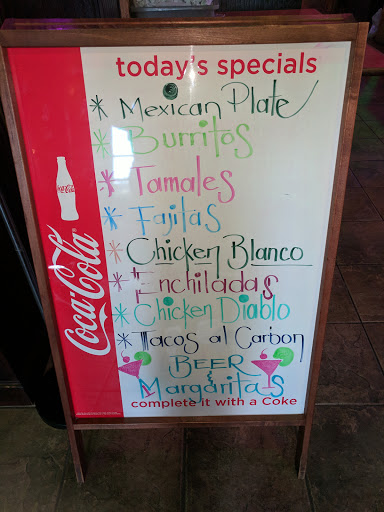 today's specials
* Mexican Plate
* Burritos
* Tamales
* Fajitas
* Chicken Blanco
* Enchiladas
* Chicken Diablo
* Tacos al Carbon
BEER
& Margaritas
complete it with a Coke
Coca-Cola
Coca-Cola